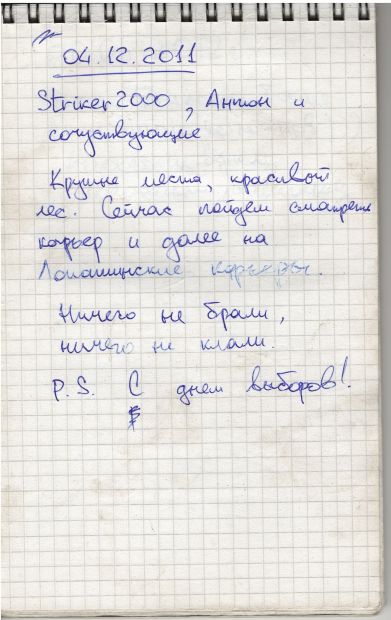 04.12.2011
Striker2000, Антон и
сочуствующие
Крутые места, красивый
лес. Сейчас пойдем смотреть
карьер и далее на
Лопатинские карьеры.
Ничего не брали,
ничего не клали.
P.S. С днем выборов!